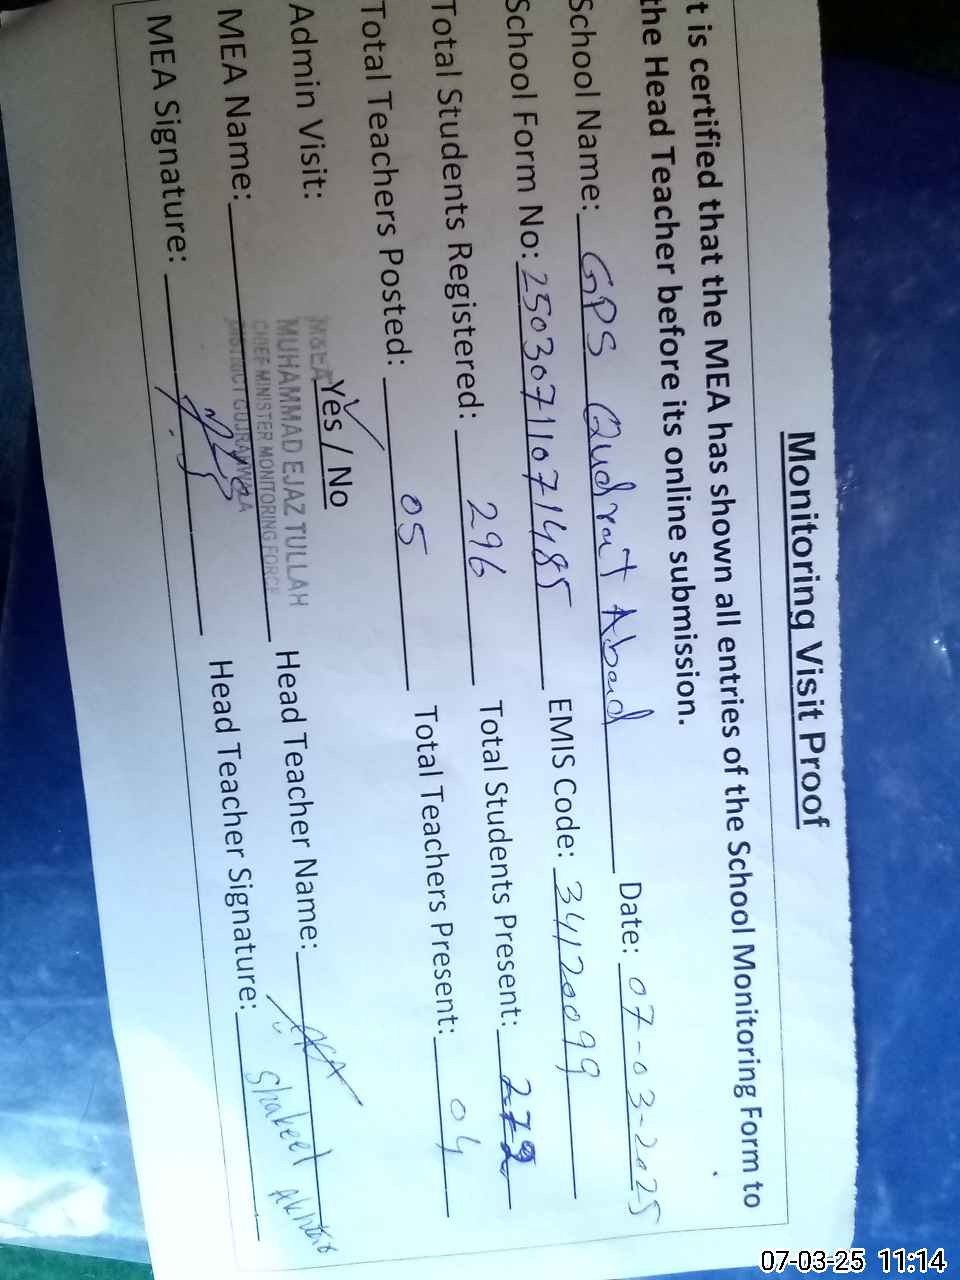 Monitoring Visit Proof
t is certified that the MEA has shown all entries of the School Monitoring Form to
the Head Teacher before its online submission.
School Name: GPS Qudrat Abad Date: 07-03-2025
School Form No: 25030711071485 EMIS Code: 34120099
Total Students Registered: 296 Total Students Present: 272
Total Teachers Posted: 05 Total Teachers Present: 04
Admin Visit: Yes / No
M&EA
MUHAMMAD EJAZ TULLAH
CHIEF MINISTER MONITORING FORCE
DISTRICT GUJRANWALA
MEA Name: Head Teacher Name:
MEA Signature: Head Teacher Signature: Shakeel Akhtar
07-03-25 11:14